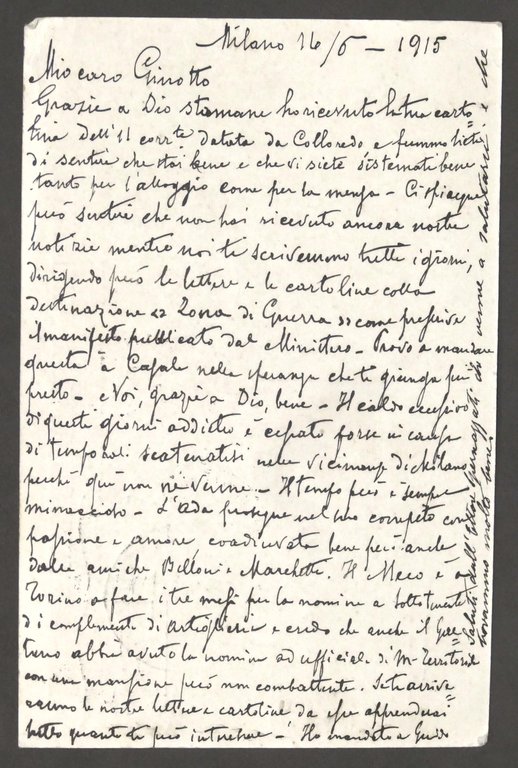 Milano 16/6 - 1915
Mio caro Ginotto
Grazie a Dio stamane ho ricevuto la tua carto=
lina dell'11 corrte. datata da Colloredo e fummo lieti
di sentire che stai bene e che vi siete sistemati bene
tanto per l'alloggio come per la mensa - Ci spiacque
però sentire che non hai ricevuto ancora nostre
notizie mentre noi ti scrivemmo tutti i giorni,
dirigendo però le lettere e le cartoline colla
destinazione << Zona di Guerra >> come prescrive
il manifesto pubblicato dal Ministero - Provo a mandare
questa a Casale nella speranza che ti giunga più
presto - e Noi, grazie a Dio, bene - Il caldo eccessivo
di questi giorni addietro è cessato forse in causa
di temporali scatenatisi nelle vicinanze di Milano
perché qui non ne venne. - Il tempo però è sempre
minaccioso - L'Ada prosegue nel suo compito con
passione e amore, coadiuvata bene però anche
dalle amiche Belloni e Marchetti. Il Meco è a
Torino a fare i tre mesi per la nomina a sottotenente
di complemento di artiglieria e credo che anche il
abbia avuto la nomina ad ufficiale di M. Territoriale
con una mansione però non combattente. Se ti arrive=
ranno le nostre lettere e cartoline da esse apprenderai
tutto quanto ti può interessare - Ho mandato a Guido
Saluti dall'Ettore che venne a salutarci e che
trovammo molto bene